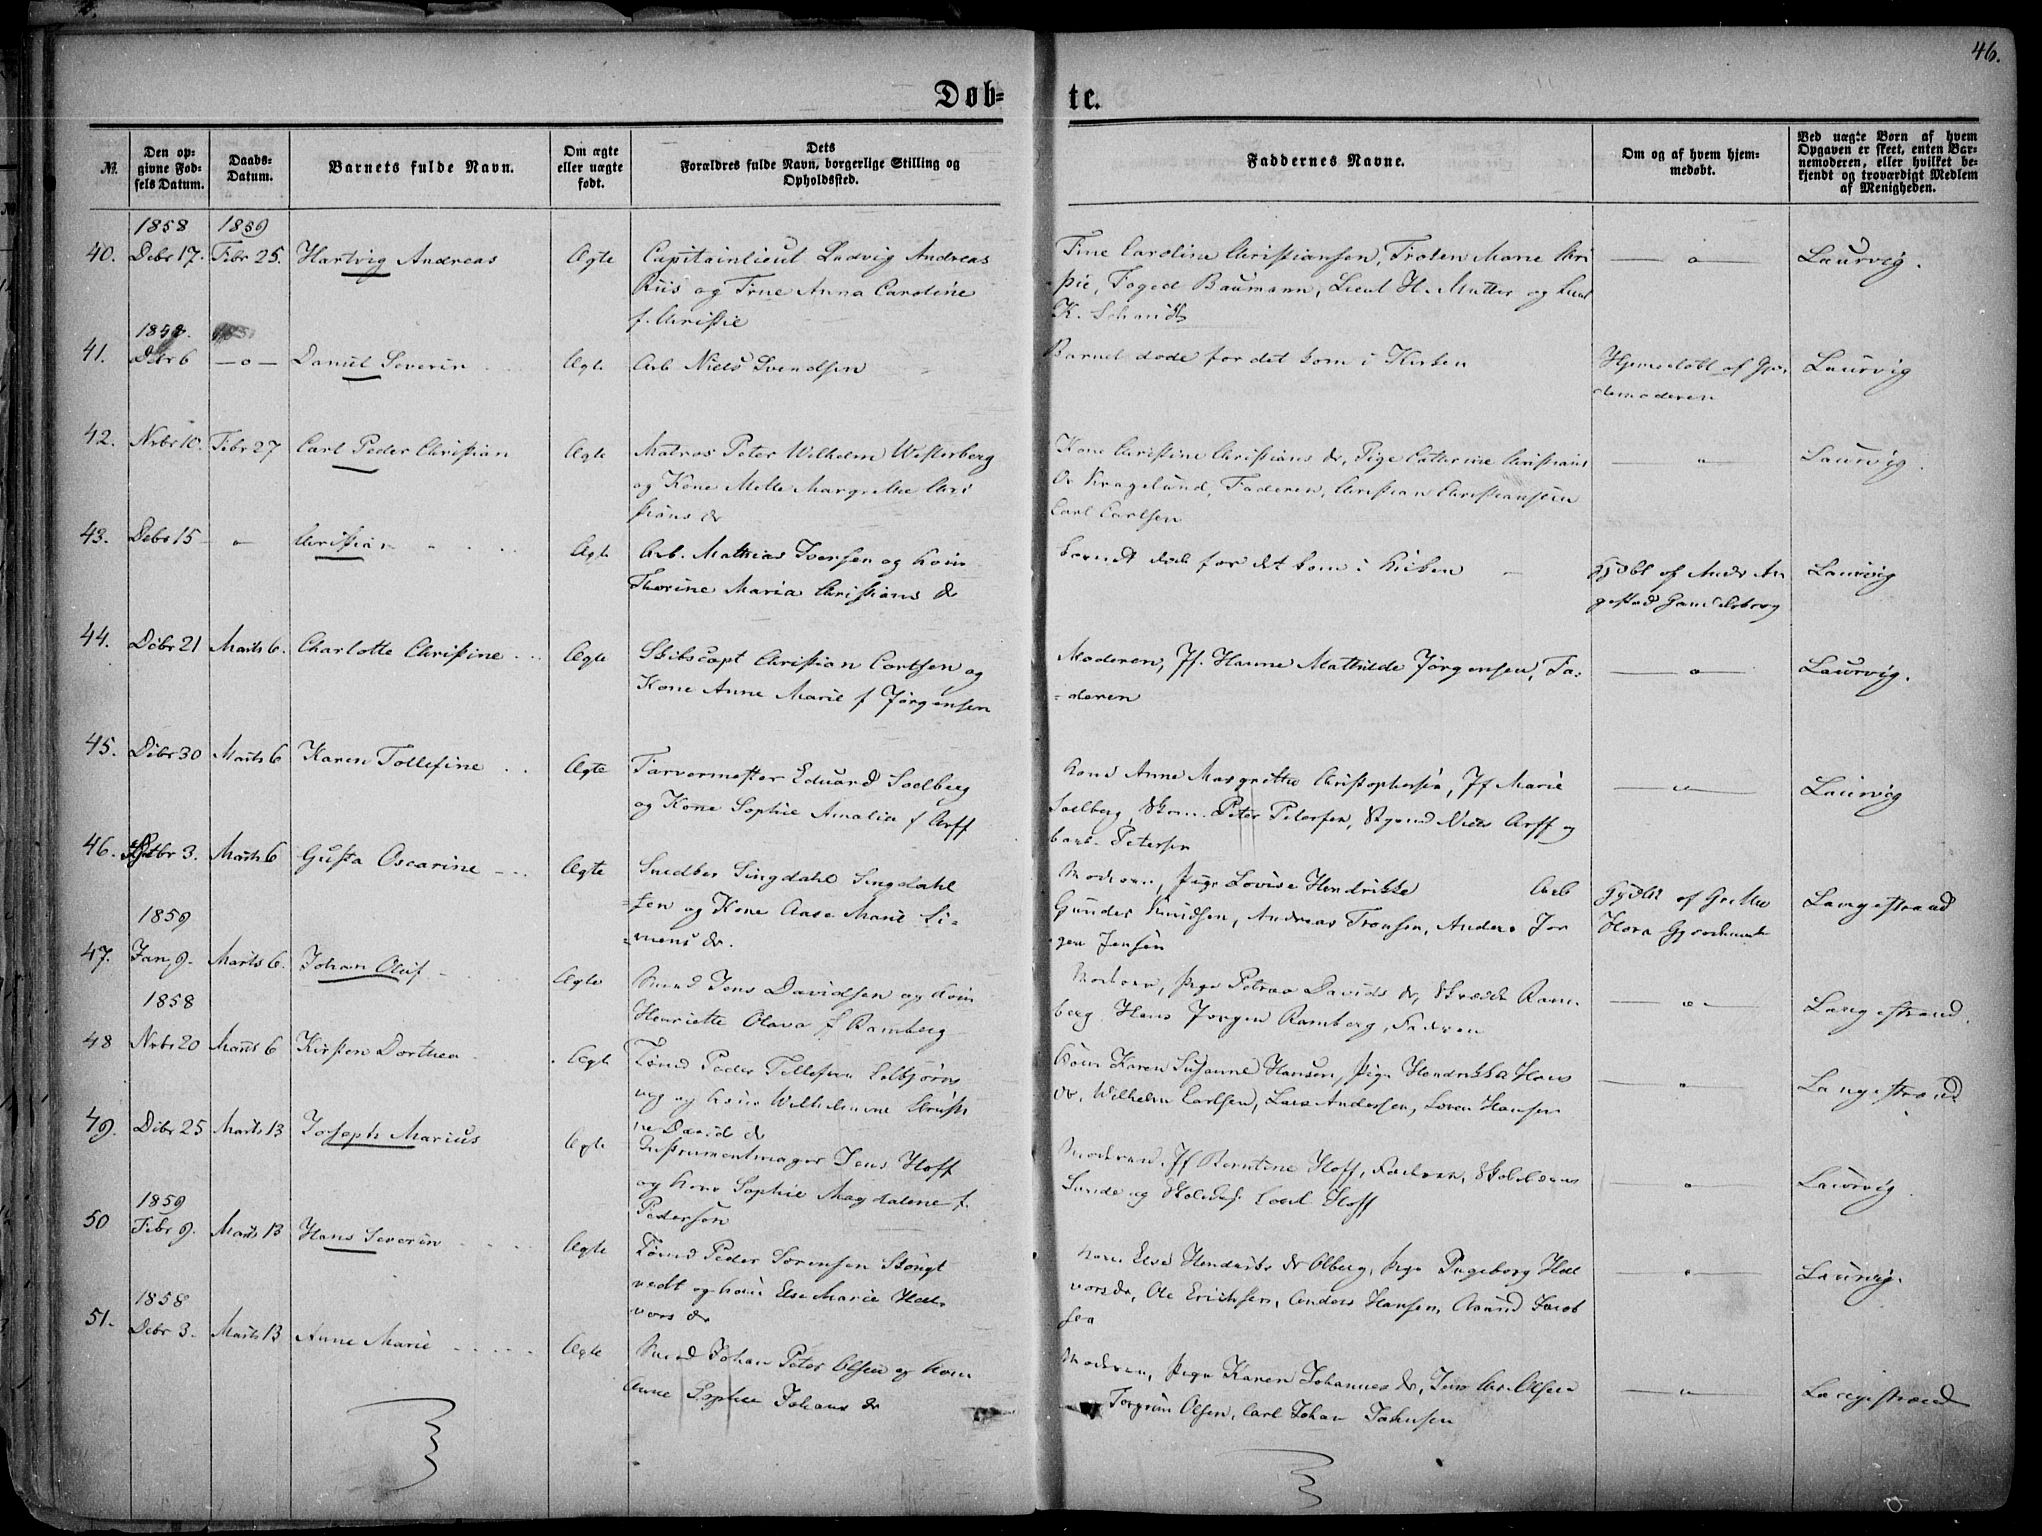 46.
Døb=
te.
№.
Den op=
givne Fød=
sels Datum.
Daabs=
Datum.
Barnets fulde Navn.
Om ægte
eller uægte
født.
Dets
Forældres fulde Navn, borgerlige Stilling og
Opholdssted.
Faddernes Navne.
Om og af hvem hjem=
medøbt.
Ved uægte Børn af hvem
Opgaven er skeet, enten Bar=
nemoderen, eller hvilket be=
kjendt og troværdigt Medlem
af Menigheden.
1858 1859
40. Debr 17. Febr 25. Hartvig Andreas Ægte Capitainlieut Ludvig Andreas
Riis og Frue Anna Caroline
f. Christie
Frue Caroline Christiansen, Frøken Marie Chri
stie, Foged Baumann, Lieut H. Mütter og Lieut
K. Schmidt
— o — Laurvig.
1858.
41. Debr 6 — o — Daniel Severin Ægte Arb Niels Svendsen
Barnet døde før det kom i Kirken
Hjemmedøbt af Gjor
demoderen
Laurvig
42. Nvbr 10. Febr 27 Carl Peder Christian Ægte Matros Peter Wilhelm Westerberg
og Kone Mette Margrethe Chri
stians dr
Kone Christine Christians dr, Pige Cathrine Christians
Dr Kragelund, Faderen, Christian Christiansen
Carl Carlsen
— " — Laurvig.
43. Debr 15 " Christian Ægte Arb. Mathias Iversen og Kone
Thorine Maria Christians dr
Barnet døde før det kom i Kirken
Laurvig
44. Debr 21 Marts 6. Charlotte Christine Ægte Skibscapt Christian Carlsen og
Kone Anne Marie f Jørgensen
Moderen, Jf. Hanne Mathilde Jørgensen, Fa=
=deren
— o — Laurvig.
45. Debr 30 Marts 6 Karen Tollefine Ægte Farvermester Eduard Soelberg
og Kone Sophie Amalia f Arff
Kone Anne Margrethe Christophersen, Jf Marie
Soelberg, Peter Petersen, Niels Arff og
Petersen
— " — Laurvig
46. Debr 3. Marts 6 Gusta Oscarine Ægte Snedker Lingdahl Lingdahl
sen og Kone Aase Marie Si=
=mens dr.
Moderen, Pige Lovise Hendrikke Arb
Gunder Knudsen, Andreas Tronsen, Anders Jør
gen Jensen
Langestrand
1859
47. Jan 9. Marts 6. Johan Oluf Ægte Smed Jens Davidsen og Kone
Henriette Olava f Ramberg
Moderen, Pige Petrea Davids dr, Ram=
berg Hans Jørgen Ramberg, Faderen
— " — Langestrand.
1858
48 Nvbr 20 Marts 6 Kirsten Dorthea Ægte Tømd Peder Tollefsen
og Kone Wilhelmine
ne Davids dr
Kone Karen Susanne Hansen, Pige Hendrikka Hans
dr, Wilhelm Carlsen, Lars Andersen, Søren Hansen
— " — Langestrand
49. Debr 25 Marts 13 Joseph Marius Ægte Instrumentmager Jens Hoff
og Kone Sophie Magdalene f.
Pedersen
Moderen, Jf Berntine Hoff, Faderen,
Sunde og Carl Hoff
— " — Laurvig.
1859
50 Febr 9. Marts 13 Hans Severin Ægte Tømd Peder Sørensen
vedt og Kone Else Marie Hal=
vors dr
Kone Else Hendriks dr Olberg, Pige Ingeborg Hal
vorsdr, Ole Erichsen, Anders Hansen, Jacob
sen
— " — Laurvig.
1858
51. Debr 3. Marts 13 Anne Marie Ægte Smed Johan Peter Olsen og Kone
Anne Sophie Johans dr
Moderen, Pige Karen Johannes dr, Jens Chr. Olsen
Torgrim Olsen, Carl Johan
— " — Langestrand